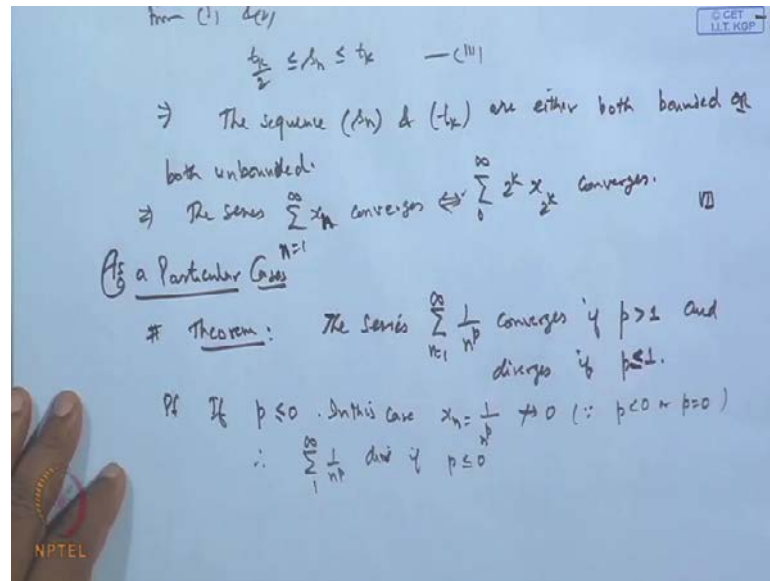 from (I) & (II)
© CET
I.I.T. KGP
t_k/2 ≤ s_n ≤ t_k — (III)
⇒ The sequence (s_n) & (t_k) are either both bounded or
both unbounded.
⇒ The series ∑_{n=1}^{∞} x_n converges ⇔ ∑_{0}^{∞} 2^k x_{2^k} converges.
As a Particular Cases
# Theorem: The series ∑_{n=1}^{∞} 1/n^p converges if p>1 and
diverges if p≤1.
Pf If p≤0. In this case x_n = 1/n^p ↛ 0 (∵ p<0 or p=0)
∴ ∑_{1}^{∞} 1/n^p div if p≤0
NPTEL